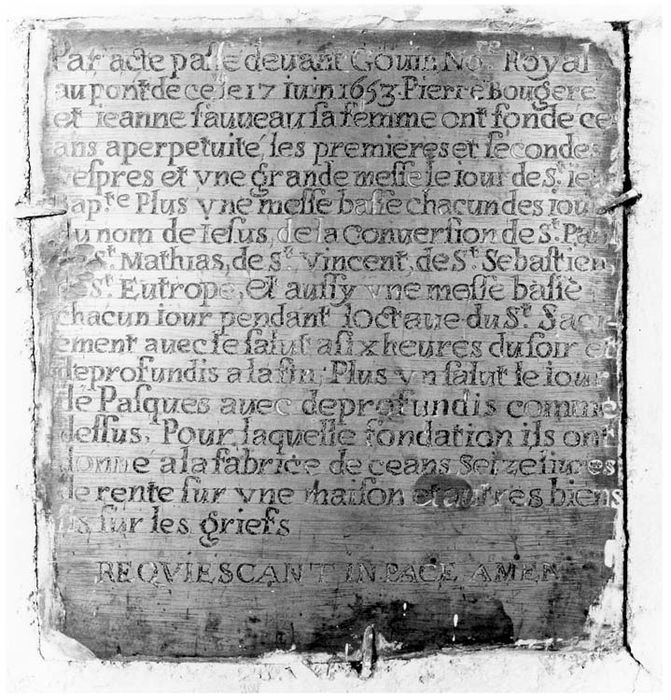 Par acte paſſe deuant Gouin No.re Royal
au pont de ceſſe 17 iuin 1653. Pierre Bougere
et ieanne ſauueau ſa femme ont fonde ce
ans a perpetuité, les premieres et ſecondes
veſpres et vne grande meſſe le iour de St. iea
bap.te Plus vne meſſe baſſe chacun des iou
du nom de Ieſus, de la Conuerſion de St. Pa
St. Mathias, de St. Vincent, de St. Sebaſtien
St. Eutrope, et auſſy vne meſſe baſſe
chacun iour pendant lOctaue du St. Sacr
ement auec le ſalut a ſix heures du ſoir et
deprofundis a la fin; Plus vn ſalut le iour
de Paſques auec deprofundis comme
deſſus, Pour laquelle fondation ils ont
donné a la fabrice de ceans Seize liures
de rente ſur vne maiſon et autres biens
ſis ſur les grieſs
REQVIESCANT IN PACE AMEN